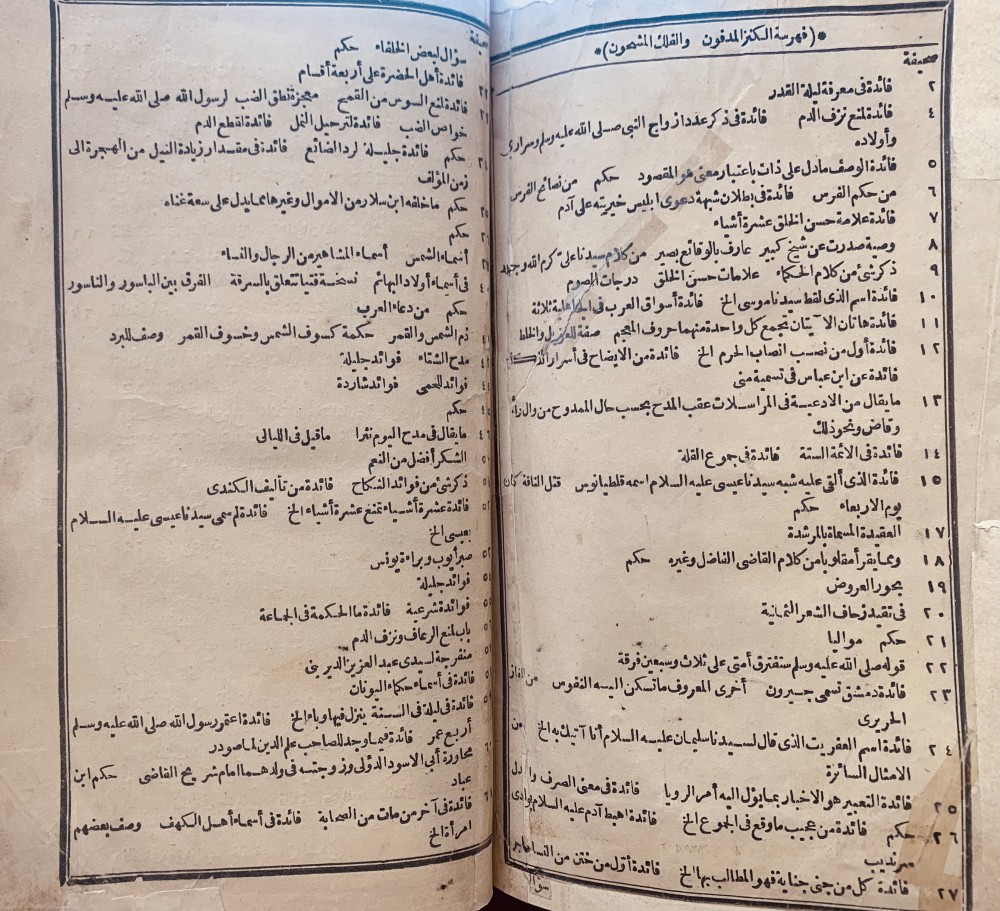 *(فهرسة الكنز المدفون والفلك المشحون)*
صحيفة
٢ فائدة فى معرفة ليلة القدر
٤ فائدة لمنع نزف الدم فائدة فى ذكر عدد ازواج النبى صلى الله عليه وسلم وسرارى
وأولاده
٥ فائدة الوصف مادل على ذات باعتبار معنى هو المقصود حكم من نصائح الفرس
٦ من حكم الفرس فائدة فى بطلان شبهة دعوى ابليس خيريته على آدم
٧ فائدة علامة حسن الخلق عشرة أشياء
٨ وصية صدرت عن شيخ كبير عارف بالوقائع بصير من كلام سيدنا على كرم الله وجهه
٩ ذكر شئ من كلام الحكماء علامات حسن الخلق درجات الصوم
١٠ فائدة اسم الذى لقط سيدنا موسى الخ فائدة أسواق العرب فى الجاهلية ثلاثة
١١ فائدة هاتان الآيتان تجمع كل واحدة منهما حروف المعجم صفة للغزيل والخلط
١٢ فائدة أول من نصب انصاب الحرم الخ فائدة من الايضاح فى أسرار النكاح
فائدة عن ابن عباس فى تسمية منى
١٣ ما يقال من الادعية فى المراسلات عقب المدح بحسب حال الممدوح من وال
وقاض ونحو ذلك
١٤ فائدة فى الائمة الستة فائدة فى جموع القلة
١٥ فائدة الذى ألقى عليه شبه سيدنا عيسى عليه السلام اسمه قلطيانوس قتل الناقة كان
يوم الاربعاء حكم
١٧ العقيدة المسماة بالمرشدة
١٨ ومما يقرأ مقلوبا من كلام القاضى الفاضل وغيره حكم
١٩ بحور العروض
٢٠ فى تقييد زحاف الشعر الثمانية
٢١ حكم مواليا
٢٢ قوله صلى الله عليه وسلم ستفترق أمتى على ثلاث وسبعين فرقة
٢٣ فائدة دمشق تسمى جيرون أخرى المعروف ما تسكن اليه النفوس من الغاز
الحريرى
٢٤ فائدة اسم العفريت الذى قال لسيدنا سليمان عليه السلام أنا آتيك به الخ من
الامثال السائرة
٢٥ فائدة التعبير هو الاخبار بما يؤل اليه أمر الرويا فائدة فى معنى الصرف
٢٦ حكم فائدة من عجيب ما وقع فى الجموع الخ فائدة اهبط آدم عليه السلام بوادى
سرنديب
٢٧ فائدة كل من جنى جناية فهو المطالب بها الخ فائدة أول من ختن من النساء هاجر
سؤال
صحيفة
سؤال لبعض الخلفاء حكم
فائدة أهل الحضرة على أربعة أقسام
فائدة لمنع السوس من القمح معجزة نطق الضب لرسول الله صلى الله عليه وسلم
خواص الضب فائدة لترحيل النمل فائدة لقطع الدم
حكم فائدة جليلة لرد الضائع فائدة فى مقدار زيادة النيل من الهجرة الى
زمن المؤلف
حكم ما خلفه ابن سلار من الاموال وغيرها مما يدل على سعة غناه
حكم
أسماء الشمس أسماء المشاهير من الرجال والنساء
فى أسماء أولاد البهائم نسخة فتيا تتعلق بالسرقة الفرق بين الباسور والناسور
حكم من دعاء العرب
ذم الشمس والقمر حكمة كسوف الشمس وخسوف القمر وصف للبرد
مدح الشتاء فوائد جليلة
فوائد للعمى فوائد شاردة
حكم
ما يقال فى مدح اليوم نثرا ما قيل فى الليالى
الشكر أفضل من النعم
ذكر شئ من فوائد النكاح فائدة من تأليف الكندى
فائدة عشرة أشياء تمنع عشرة أشياء الخ فائدة لم سمى سيدنا عيسى عليه السلام
بعيسى الخ
صبر أيوب وبراءة يونس
فوائد جليلة
فوائد شرعية فائدة ما الحكمة فى الجماعة
باب لمنع الرعاف ونزف الدم
منفرجة لسيدى عبد العزيز الديرينى
فائدة فى أسماء حكماء اليونان
فائدة فى ليلة فى السنة ينزل فيها وباء الخ فائدة اعتمر رسول الله صلى الله عليه وسلم
أربع عمر فائدة فيما وجد للصاحب علم الدين لما صودر
محاورة أبى الاسود الدؤلى وزوجته فى ولدهما امام شريح القاضى حكم ابن
عباد
فائدة فى آخر من مات من الصحابة فائدة فى أسماء أهل الكهف وصف بعضهم
امرأة الخ